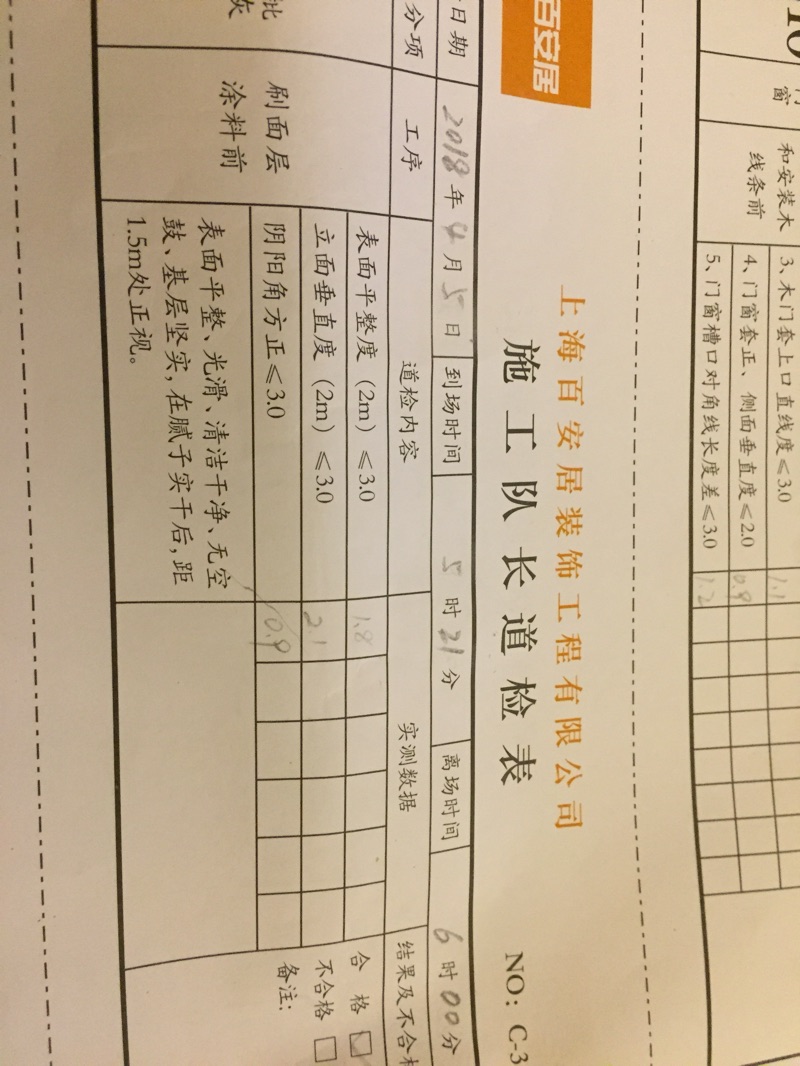 门窗
和安装木
线条前
3、木门套上口直线度≤3.0
1.1
4、门窗套正、侧面垂直度≤2.0
0.9
5、门窗槽口对角线长度差≤3.0
1.2
百安居
上海百安居装饰工程有限公司
施工队长道检表
NO: C-3
日期 2018年4月5日 到场时间 5时21分 离场时间 6时00分
分项 工序 道检内容 实测数据 结果及不合格
刷面层
涂料前
表面平整度（2m）≤3.0 1.8
立面垂直度（2m）≤3.0 2.1
阴阳角方正≤3.0 0.9
表面平整、光滑、清洁干净、无空
鼓、基层坚实，在腻子实干后，距
1.5m处正视。
合格 □
不合格 □
备注：